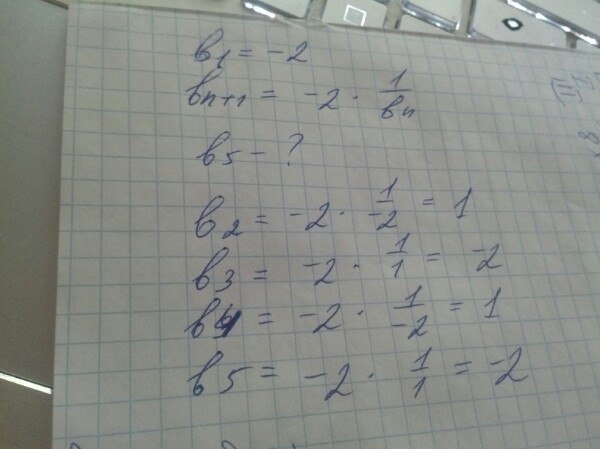 b1 = -2
bn+1 = -2 · 1/bn
b5 - ?
b2 = -2 · 1/-2 = 1
b3 = -2 · 1/1 = -2
b4 = -2 · 1/-2 = 1
b5 = -2 · 1/1 = -2